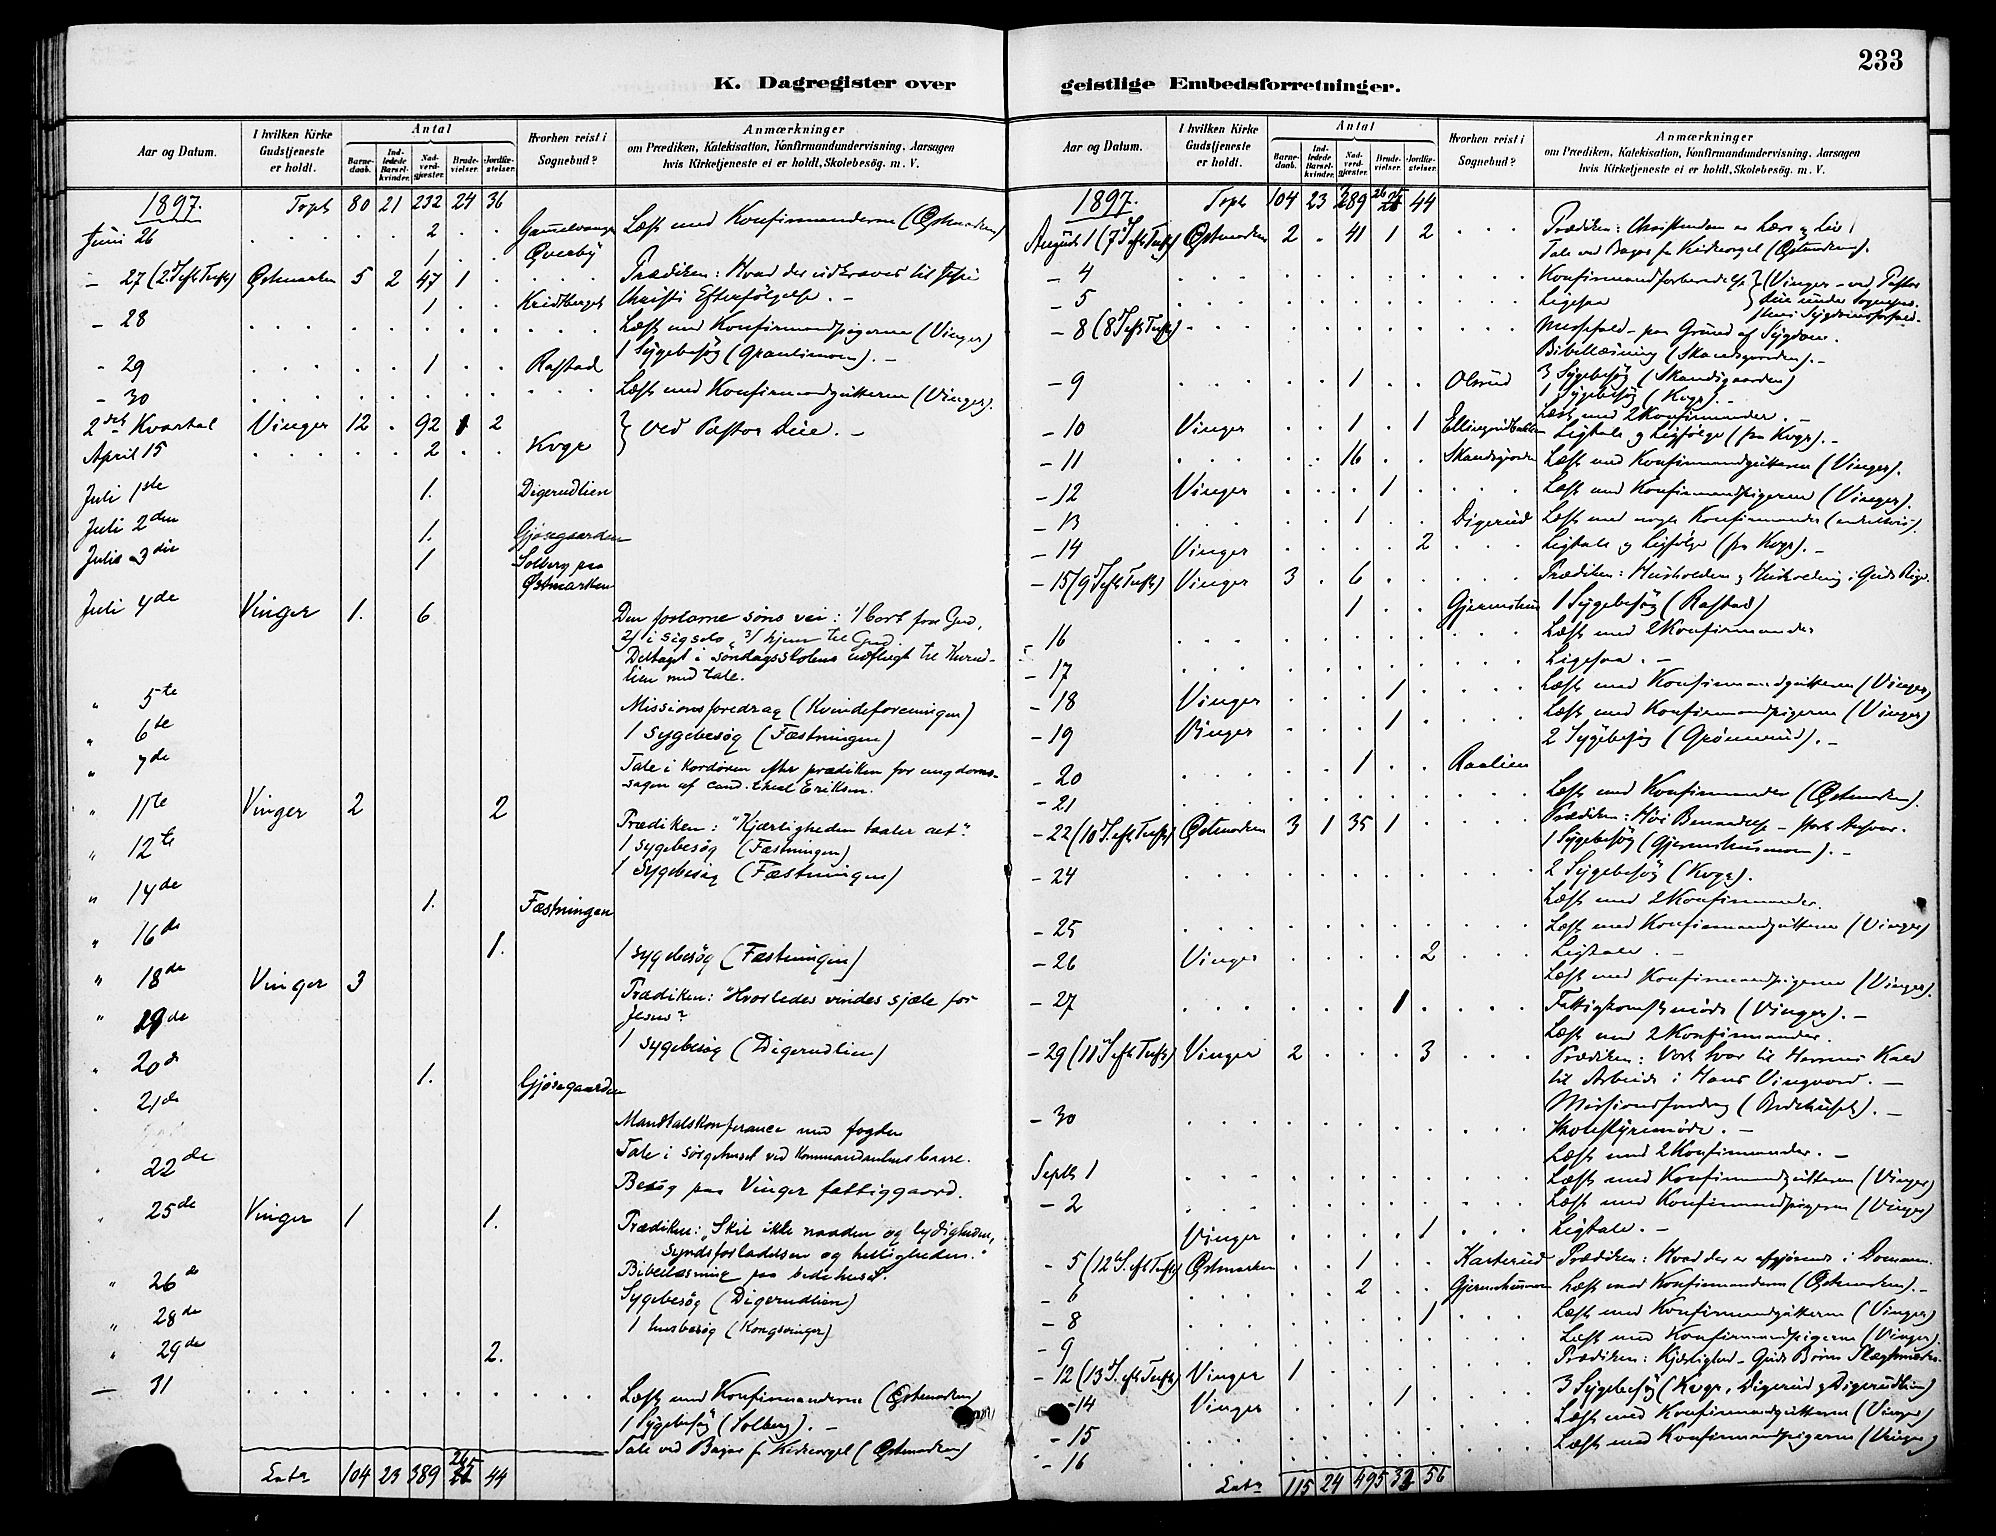 K. Dagregister over
Aar og Datum.
I hvilken Kirke Gudstjeneste er holdt.
Antal
Barne-daab.
Ind-ledede Barsel-kvinder.
Nad-verd-gjæster.
Brude-vielser.
Jordfæ-stelser.
Hvorhen reist i Sognebud?
Anmærkninger
om Prædiken, Katekisation, Konfirmandundervisning, Aarsagen
hvis Kirketjeneste ei er holdt, Skolebesøg. m. V.
1897. Tpt 80 21 232 24 36
Juni 26 . . . . . 2 . . Gamelvangen Læst med Konfirmanderne (Østmarken)
1 . . Överby
- 27 (2 S. eft. Tref.) Østmarken 5 2 47 1 . Prædiken: Hvad der udkræves til Jesu
1 . . Kridtberget Christi Efterfølgelse. -
- 28 . . . . . . . . Læst med Konfirmandpigerne (Vinger)
1 Sygebesøg (Granlimoen). -
- 29 . . . . . 1 . . Rastad
- 30 . . . . . . . . Læst med Konfirmandgutterne (Vinger).
2det Kvartal Vinger 12 . 92 1 2 } ved Pastor Deie. -
April 15 . . . . . 2 . . Kvge
Juli 1ste 1. Digerudlien
Juli 2den 1. Gjøsegaarden
Juli 3die 1 Solberg paa
Østmarken
Juli 4de Vinger 1. 6 Den fortorne søns vei: 1/ bort fra Gud,
2/ i sigselv, 3/ hjem til Gud
Deltaget i Søndagsskolens udflugt til Kurud-
lien med tale.
" 5te Missionsforedrag (Kvindeforeningen)
" 6te 1 Sygebesøg (Fæstningen)
" 7de Tale i Kordøren efter prædiken for ungdoms-
sagen af cand. theol Eriksen.
" 11te Vinger 2 2 Prædiken: "Kjærligheden taaler alt".
" 12te 1 sygebesøg (Fæstningen)
1 Sygebesøg (Fæstningen)
" 14de 1. Fæstningen
" 16de 1. 1 sygebesøg (Fæstningen)
" 18de Vinger 3 Prædiken: "Hvorledes vindes sjæle for
" 19de Jesus?
1 sygebesøg (Digerudlien)
" 20de 1. Gjøsegaarden
" 21de Mandtalskonferance med fogden
Tale i sørgehuset ved Kommandantens baare.
" 22de Besøg paa Vinger fattiggaard.
" 25de Vinger 1 1. Prædiken: "Skil ikke naaden og lydigheden,
syndsforladelsen og helligheden."
" 26de Bibellæsning paa bedehuset.
Sygebesøg (Digerudlien)
" 28de 1 husbesøg (Kongsvinger)
" 29de 2.
— 31 . . . . . . . . . Læst med Konfirmanderne (Østmarken)
1 Sygebesøg (Solberg). -
Tale ved Bazar f. Kirkeorgel (Østmarken)
Lats 104 23 389 26 44
233
geistlige Embedsforretninger.
Aar og Datum.
I hvilken Kirke Gudstjeneste er holdt.
Antal
Barne-daab.
Ind-ledede Barsel-kvinder.
Nad-verd-gjæster.
Brude-vielser.
Jordfæ-stelser.
Hvorhen reist i Sognebud?
Anmærkninger
om Prædiken, Katekisation, Konfirmandundervisning, Aarsagen
hvis Kirketjeneste ei er holdt, Skolebesøg. m. V.
1897. Tpt 104 23 389 26 44
August 1 (7 S. eft. Tref.) Østmarken 2 . 41 1 2 . . . Prædiken: Christendom er Lære og Liv
Tale ved Bazar for Kirkeorgel (Østmarken).
- 4 . . . . . . Konfirmandforberedelse } (Vinger - ved Pastor
- 5 . . . . . . Ligesaa } Deie under Sognepr.
- 8 (8 S. eft. Tref.) . . . . . . Messefald - paa Grund af Sygdom.
Bibellæsning (Skandsgaarden). -
- 9 . . . . 1 . . Olsrud 3 Sygebesøg (Skandsgaarden)
1 Sygebesøg (Kvge). -
Læst med 2 Konfirmander. -
- 10 Vinger . . 1 . 1 Ligtale og Ligfølge (fra Kvge). -
- 11 . . . . 16 . . Skandsgaarden Læst med Konfirmandgutterne (Vinger).
- 12 Vinger . . . 1 . . . . Læst med Konfirmandpigerne (Vinger).
- 13 . . . . 1 . . Digerud Læst med nogle Konfirmander (enkeltvis).
- 14 Vinger . . . . 2 . . . Ligtale og Ligfølge (fra Kvge). -
- 15 (9 S. eft. Tref.) Vinger 3 . 6 . . . . . Prædiken: Husholdere og Husholdning i Guds Rige.
1 . . Gjermshus 1 Sygebesøg (Rastad)
- 16 . . . . . . . Læst med 2 Konfirmander
- 17 . . . . . . . Ligesaa. -
- 18 Vinger . . . 1 . . . . Læst med Konfirmandgutterne (Vinger)
- 19 Vinger . . . 1 . . . . Læst med Konfirmandpigerne (Vinger)
2 Sygebesøg (Grønnerud). -
- 20 . . . . 1 . . Raalien
- 21 . . . . . . . Læst med Konfirmander (Østmarken).
- 22 (10 S. eft. Tref.) Østmarken 3 1 35 1 . . . . Prædiken: Høi Benaadelse - stort Ansvar.
1 Sygebesøg (Gjermshusmoen). -
- 24 . . . . . . . 2 Sygebesøg (Kvge).
Læst med 2 Konfirmander.
- 25 . . . . . . . Læst med Konfirmandgutterne (Vinger)
- 26 Vinger . . . . 2 . . . Ligtale. -
Læst med Konfirmandpigerne (Vinger).
- 27 . . . . . 1 . . . Fattigkomm.møde (Vinger). -
Læst med 2 Konfirmander.
- 29 (11 S. eft. Tref.) Vinger 2 . . . 3 . . . Prædiken: Vort Svar til Herrens Kald
til Arbeide i Hans Vingaard. -
Missionsforedrag (Bedehuset). -
- 30 . . . . . . . Skolestyremøde. -
Læst med 2 Konfirmander. -
Septb 1 . . . . . . . Læst med Konfirmandgutterne (Vinger)
- 2 . . . . . . . Læst med Konfirmandpigerne (Vinger)
Vinger . . . . 1 . . . Ligtale. -
- 5 (12 S. eft. Tref.) Østmarken . . 1 . . Karterud Prædiken: Hvad der er afgjørende i Dommen.
- 6 . . . . 2 . . Gjermshusmoen Læst med Konfirmanderne (Østmarken). -
- 8 . . . . . . 1 . . . Læst med Konfirmandgutterne (Vinger)
- 9 . . . . . . . Læst med Konfirmandpigerne (Vinger).
- 12 (13 S. eft. Tref.) Vinger 1 . . . . . . . Prædiken: Kjærlighed - Guds Børns Slægtsmærke.
3 Sygebesøg (Kvge, Digerud og Digerudlien)
- 14 Vinger . . . 1 . . . .
- 15 . . . . . . . Læst med Konfirmandgutterne (Vinger)
- 16 . . . . . . . Læst med Konfirmandpigerne (Vinger)
Lats 115 24 495 32 56